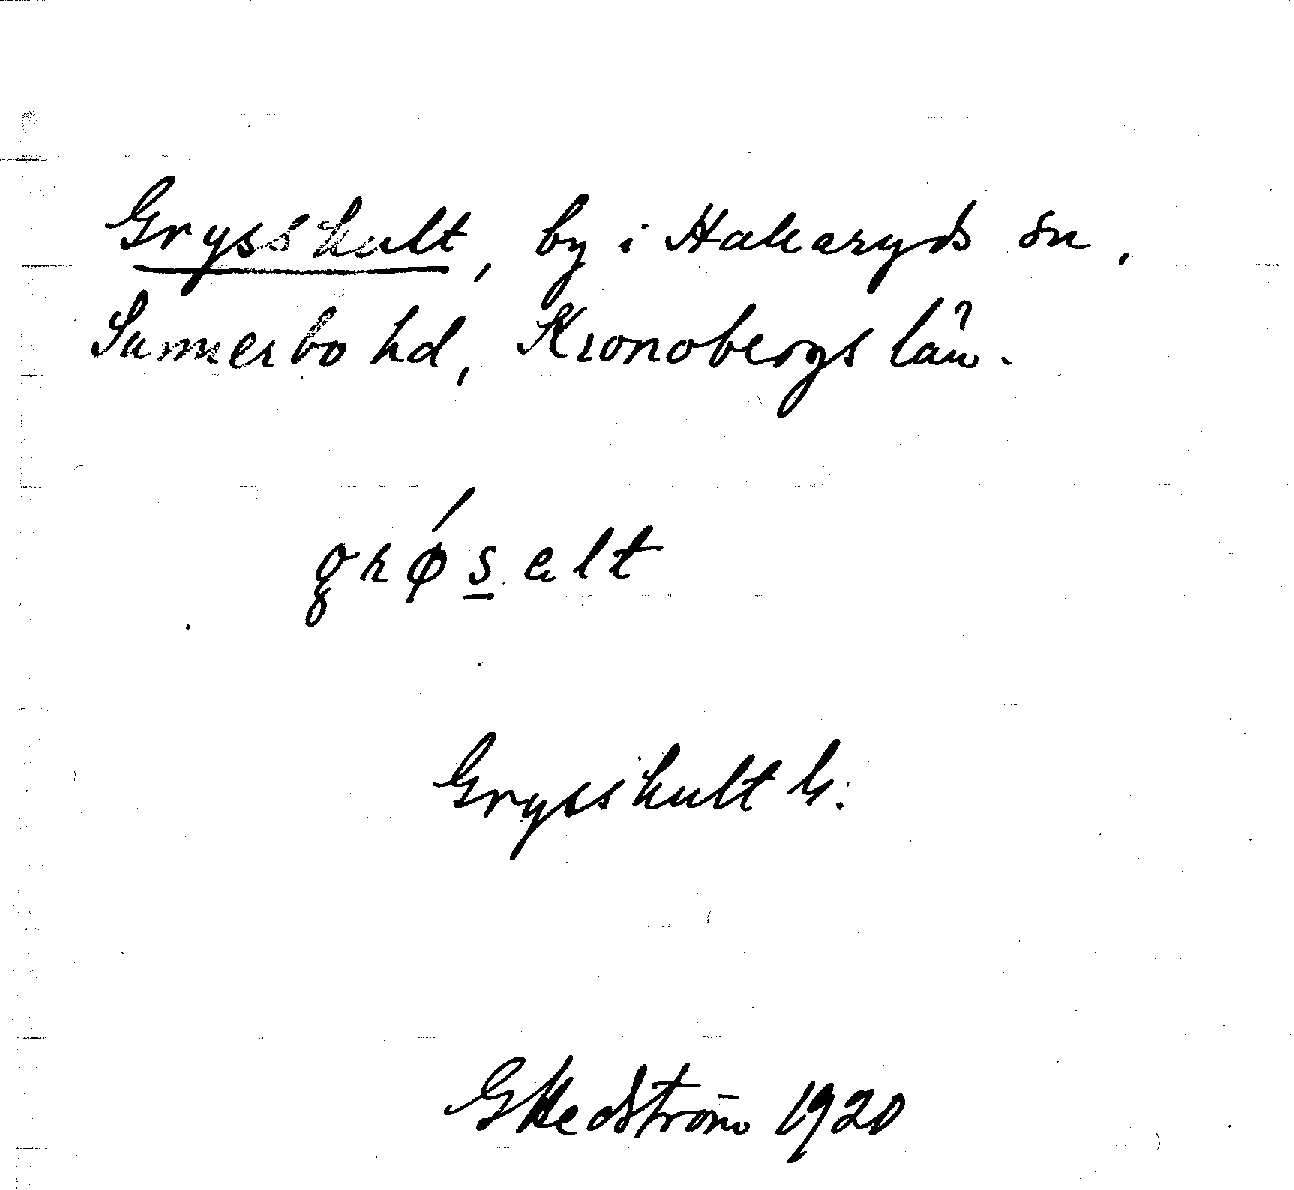 Grysshult, by i Hakaryds sn,
Sunnerbo hd, Kronobergs län.
grǿselt
Grysshult h.
GHedström 1920